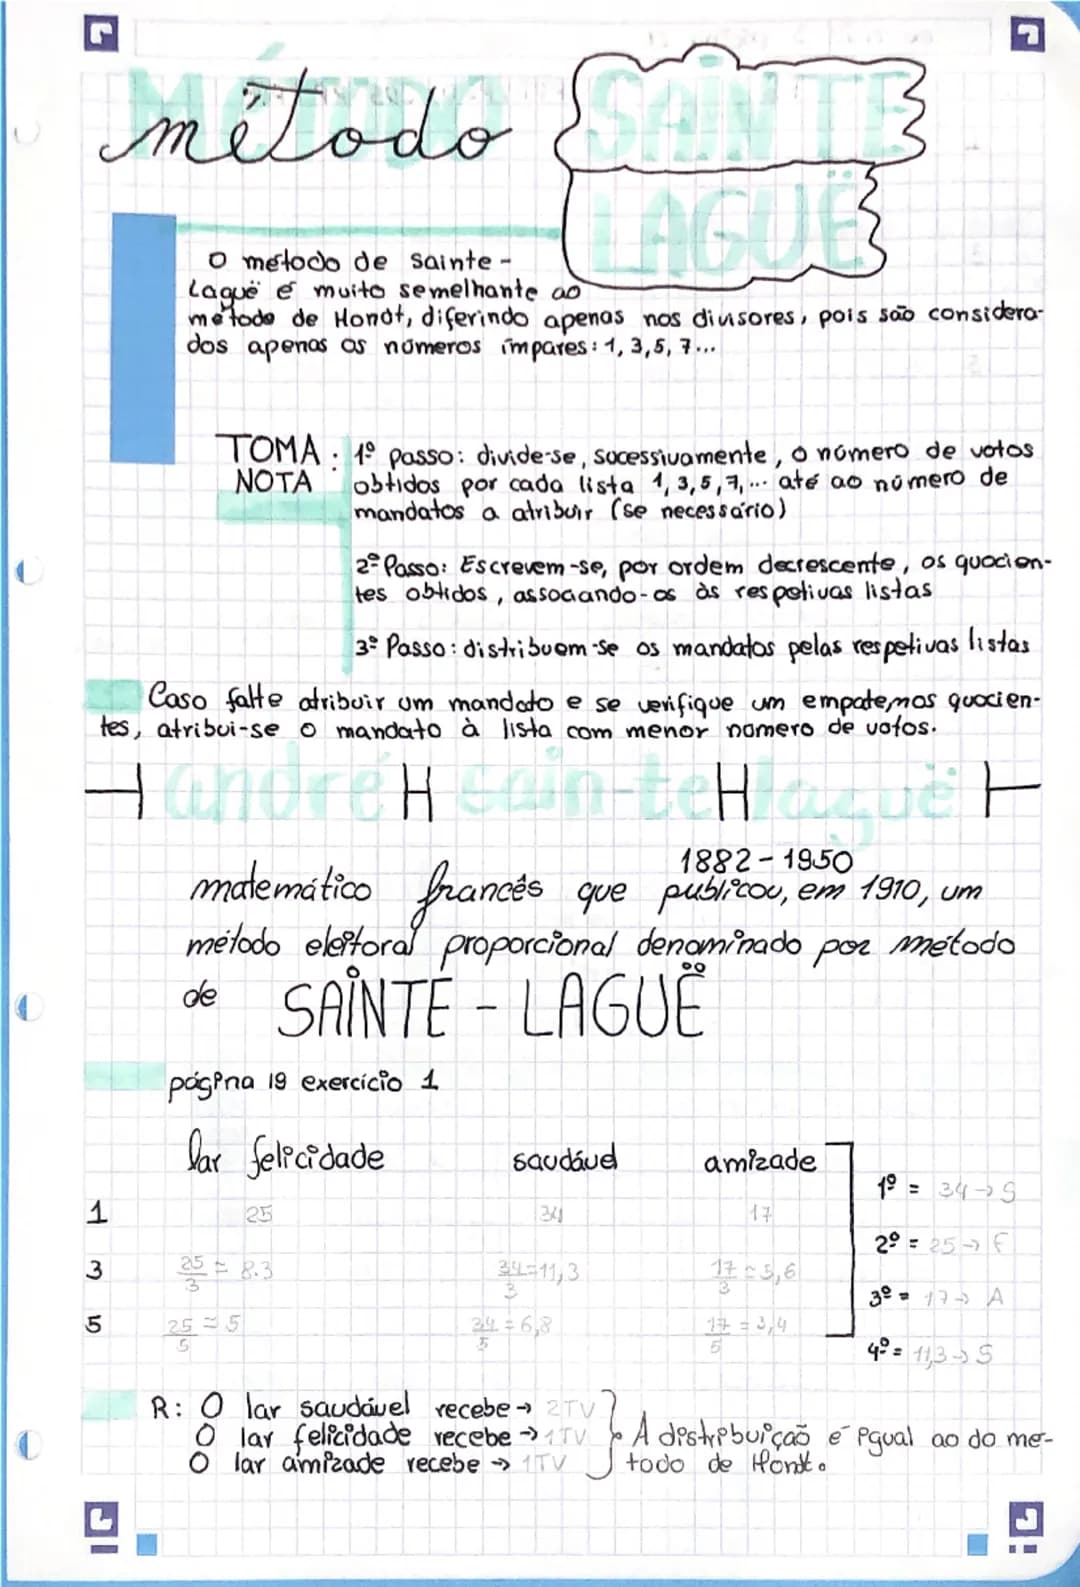 método SAINTE
LAGUË
O método de Sainte-
Laguë é muito semelhante ao
método de Hondt, diferindo apenas nos divisores, pois são considera-
dos apenas os números ímpares: 1, 3, 5, 7...
TOMA : 1º passo: divide-se, sucessivamente, o número de votos
NOTA obtidos por cada lista 1, 3, 5, 7, ... até ao número de
mandatos a atribuir (se necessário)
2º Passo: Escrevem-se, por ordem decrescente, os quocien-
tes obtidos, associando-os às respetivas listas
3º Passo: distribuem-se os mandatos pelas respetivas listas
Caso falte atribuir um mandato e se verifique um empate, nos quocien-
tes, atribui-se o mandato à lista com menor número de votos.
andré H sain-te H laguë
1882-1950
matemático francês que publicou, em 1910, um
método eleitoral proporcional denominado por método
de SAINTE-LAGUË
página 19 exercício 1
lar felicidade saudável amizade
1 25 34 17
1º = 34 → S
3 25/3 ≈ 8.3 34/3 = 11,3 17/3 ≈ 5,6
2º = 25 → F
3º = 17 → A
5 25/5 ≈ 5 34/5 = 6,8 17/5 = 3,4
4º = 11,3 → S
R: O lar saudável recebe → 2TV
O lar felicidade recebe → 1TV } A distribuição é igual ao do mé-
O lar amizade recebe → 1TV todo de Hondt.